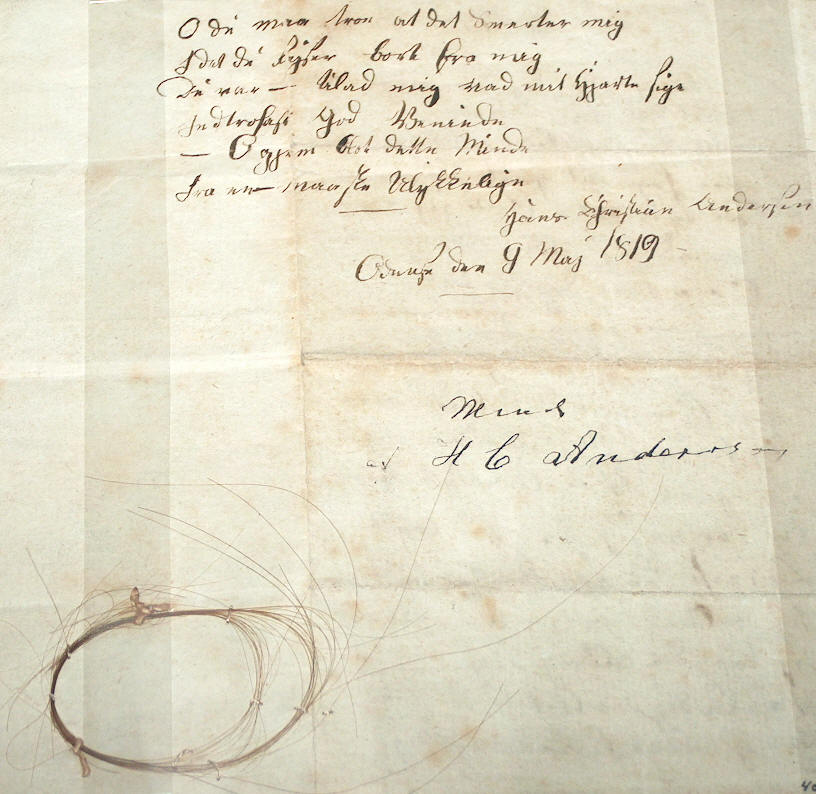 O du maa troe at det Smerter mig
I det du Rejser bort fra mig
Du var — tilad mig vad mit Hjarte sige
God Veninde
— O gjem dette Minde
fra en maaske Ulykkelige
Hans Christian Andersen
Odense den 9 Maj 1819
Minde
af H C Andersen